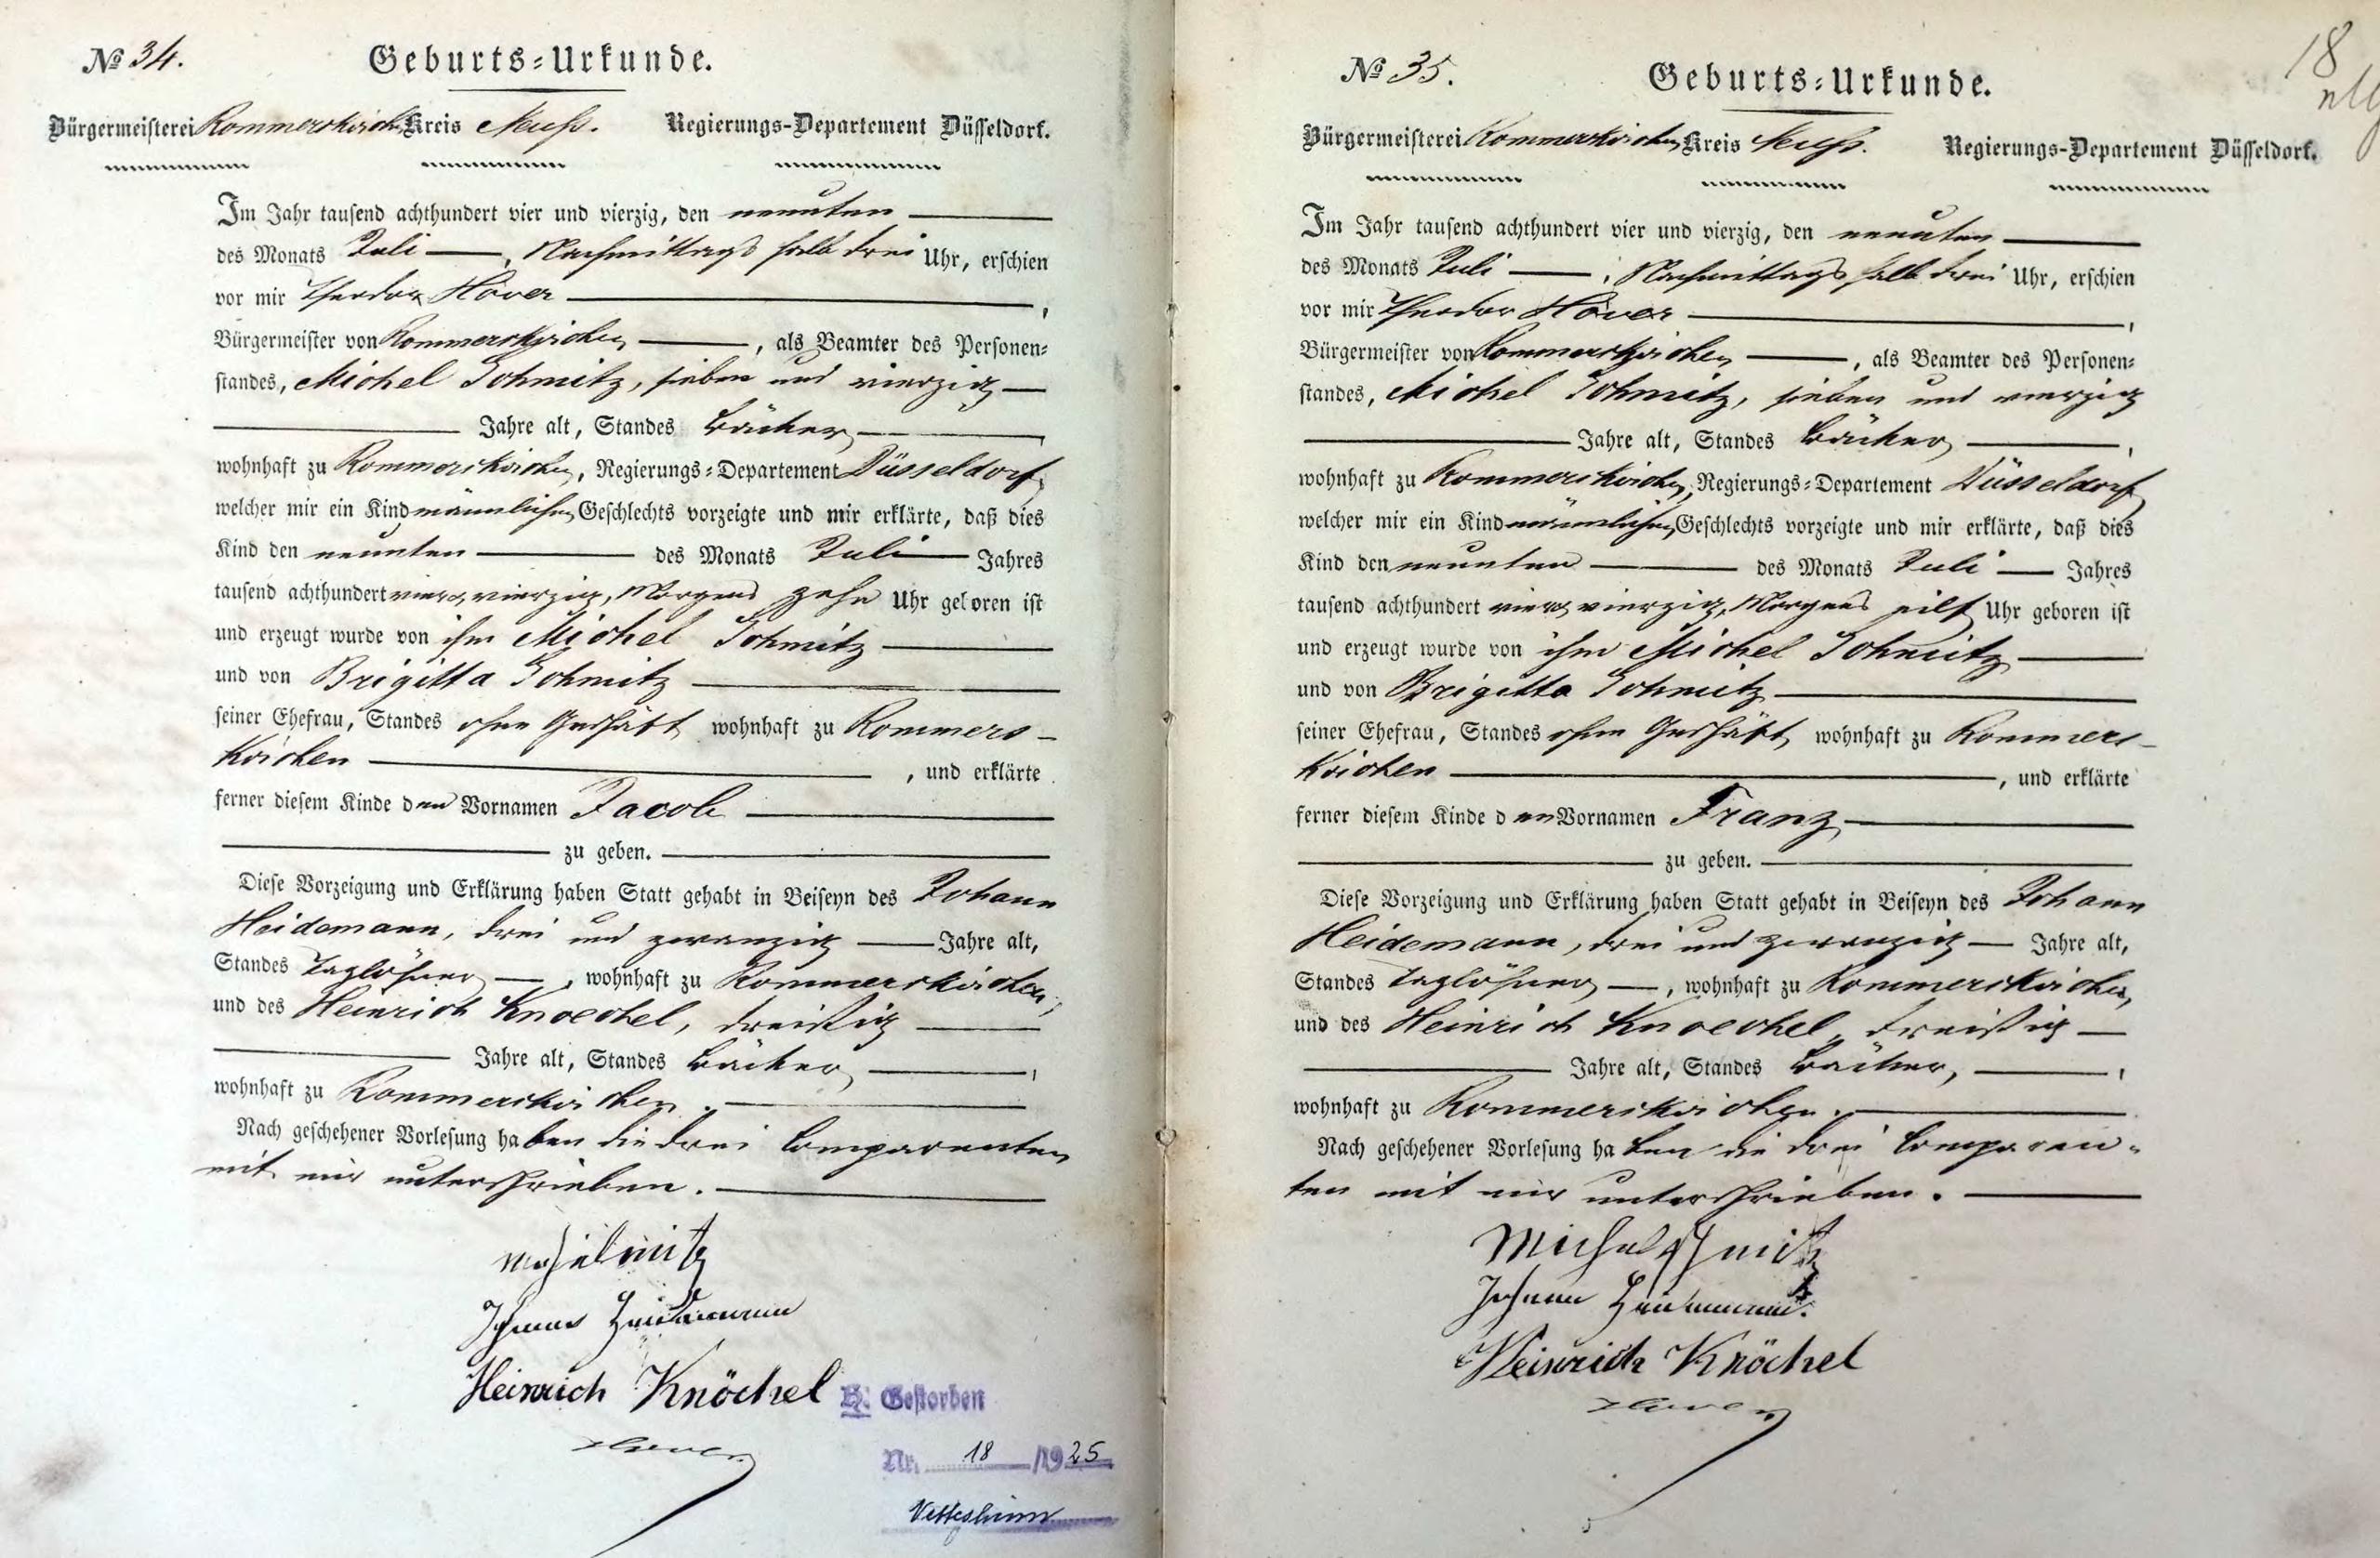 № 34.
Geburts-Urkunde.
Bürgermeisterei Rommerskirchen Kreis Neuß. Regierungs-Departement Düsseldorf.
Im Jahr tausend achthundert vier und vierzig, den neunten
des Monats Juli, Nachmittags halb drei Uhr, erschien
vor mir Theodor Höver,
Bürgermeister von Rommerskirchen, als Beamter des Personen-
standes, Michel Schmitz, sieben und vierzig
Jahre alt, Standes Bäcker,
wohnhaft zu Rommerskirchen, Regierungs-Departement Düsseldorf,
welcher mir ein Kind männlichen Geschlechts vorzeigte und mir erklärte, daß dies
Kind den neunten des Monats Juli Jahres
tausend achthundert vier u vierzig, Morgens zehn Uhr geboren ist
und erzeugt wurde von ihm Michel Schmitz
und von Brigitta Schmitz
seiner Ehefrau, Standes ohne Geschäft wohnhaft zu Rommers-
kirchen, und erklärte
ferner diesem Kinde den Vornamen Jacob
zu geben.
Diese Vorzeigung und Erklärung haben Statt gehabt in Beiseyn des Johann
Heidemann, drei und zwanzig Jahre alt,
Standes Taglöhner, wohnhaft zu Rommerskirchen,
und des Heinrich Knoechel, dreißig
Jahre alt, Standes Bäcker,
wohnhaft zu Rommerskirchen.
Nach geschehener Vorlesung haben die drei Comparenten
mit mir unterschrieben.
Johann Heidemann
Heinrich Knöchel
Höver
H. Gestorben
Nr. 18 /1925
Nettesheim
18
№ 35.
Geburts-Urkunde.
Bürgermeisterei Rommerskirchen Kreis Neuß. Regierungs-Departement Düsseldorf.
Im Jahr tausend achthundert vier und vierzig, den neunten
des Monats Juli, Nachmittags halb drei Uhr, erschien
vor mir Theodor Höver,
Bürgermeister von Rommerskirchen, als Beamter des Personen-
standes, Michel Schmitz, sieben und vierzig
Jahre alt, Standes Bäcker,
wohnhaft zu Rommerskirchen, Regierungs-Departement Düsseldorf
welcher mir ein Kind männlichen Geschlechts vorzeigte und mir erklärte, daß dies
Kind den neunten des Monats Juli Jahres
tausend achthundert vier u vierzig, Morgens eilf Uhr geboren ist
und erzeugt wurde von ihm Michel Schmitz
und von Brigitta Schmitz
seiner Ehefrau, Standes ohne Geschäft wohnhaft zu Rommers-
kirchen, und erklärte
ferner diesem Kinde den Vornamen Franz
zu geben.
Diese Vorzeigung und Erklärung haben Statt gehabt in Beiseyn des Johann
Heidemann, drei und zwanzig Jahre alt,
Standes Taglöhner, wohnhaft zu Rommerskirchen,
und des Heinrich Knoechel, dreißig
Jahre alt, Standes Bäcker,
wohnhaft zu Rommerskirchen.
Nach geschehener Vorlesung haben die drei Comparen-
ten mit mir unterschrieben.
Michel Schmitz
Johann Heidemann.
Heinrich Knöchel
Höver